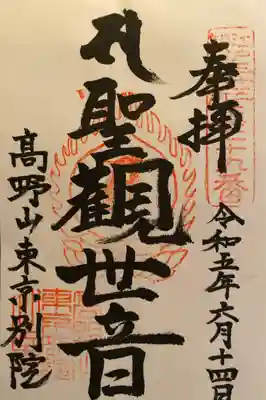 奉拝
令和五年六月十四日
𑖭聖觀世音
高野山東京別院